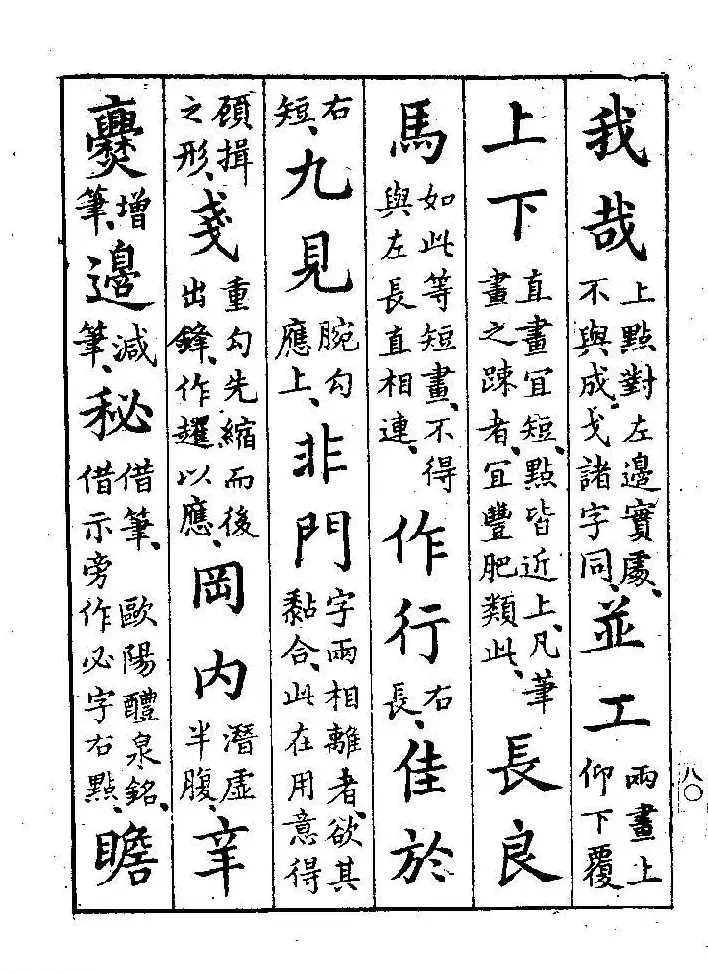 我哉上點對左邊實處、不與成戈諸字同、並工兩畫上仰下覆
上下直畫宜短、點皆近上、凡筆畫之踈者、宜豐肥類此、長良
馬如此等短畫、不得與左長直相連、作行右長、佳於
右短、九見腕勾應上、非門字兩相離者、欲其黏合、此在用意得
顧揖之形、戔重勾先縮而後出鋒、作趯以應、岡内潛虛半腹、辛
爨增筆、邊減筆、秘借筆、歐陽醴泉銘、借示旁作必字右點、瞻
八〇